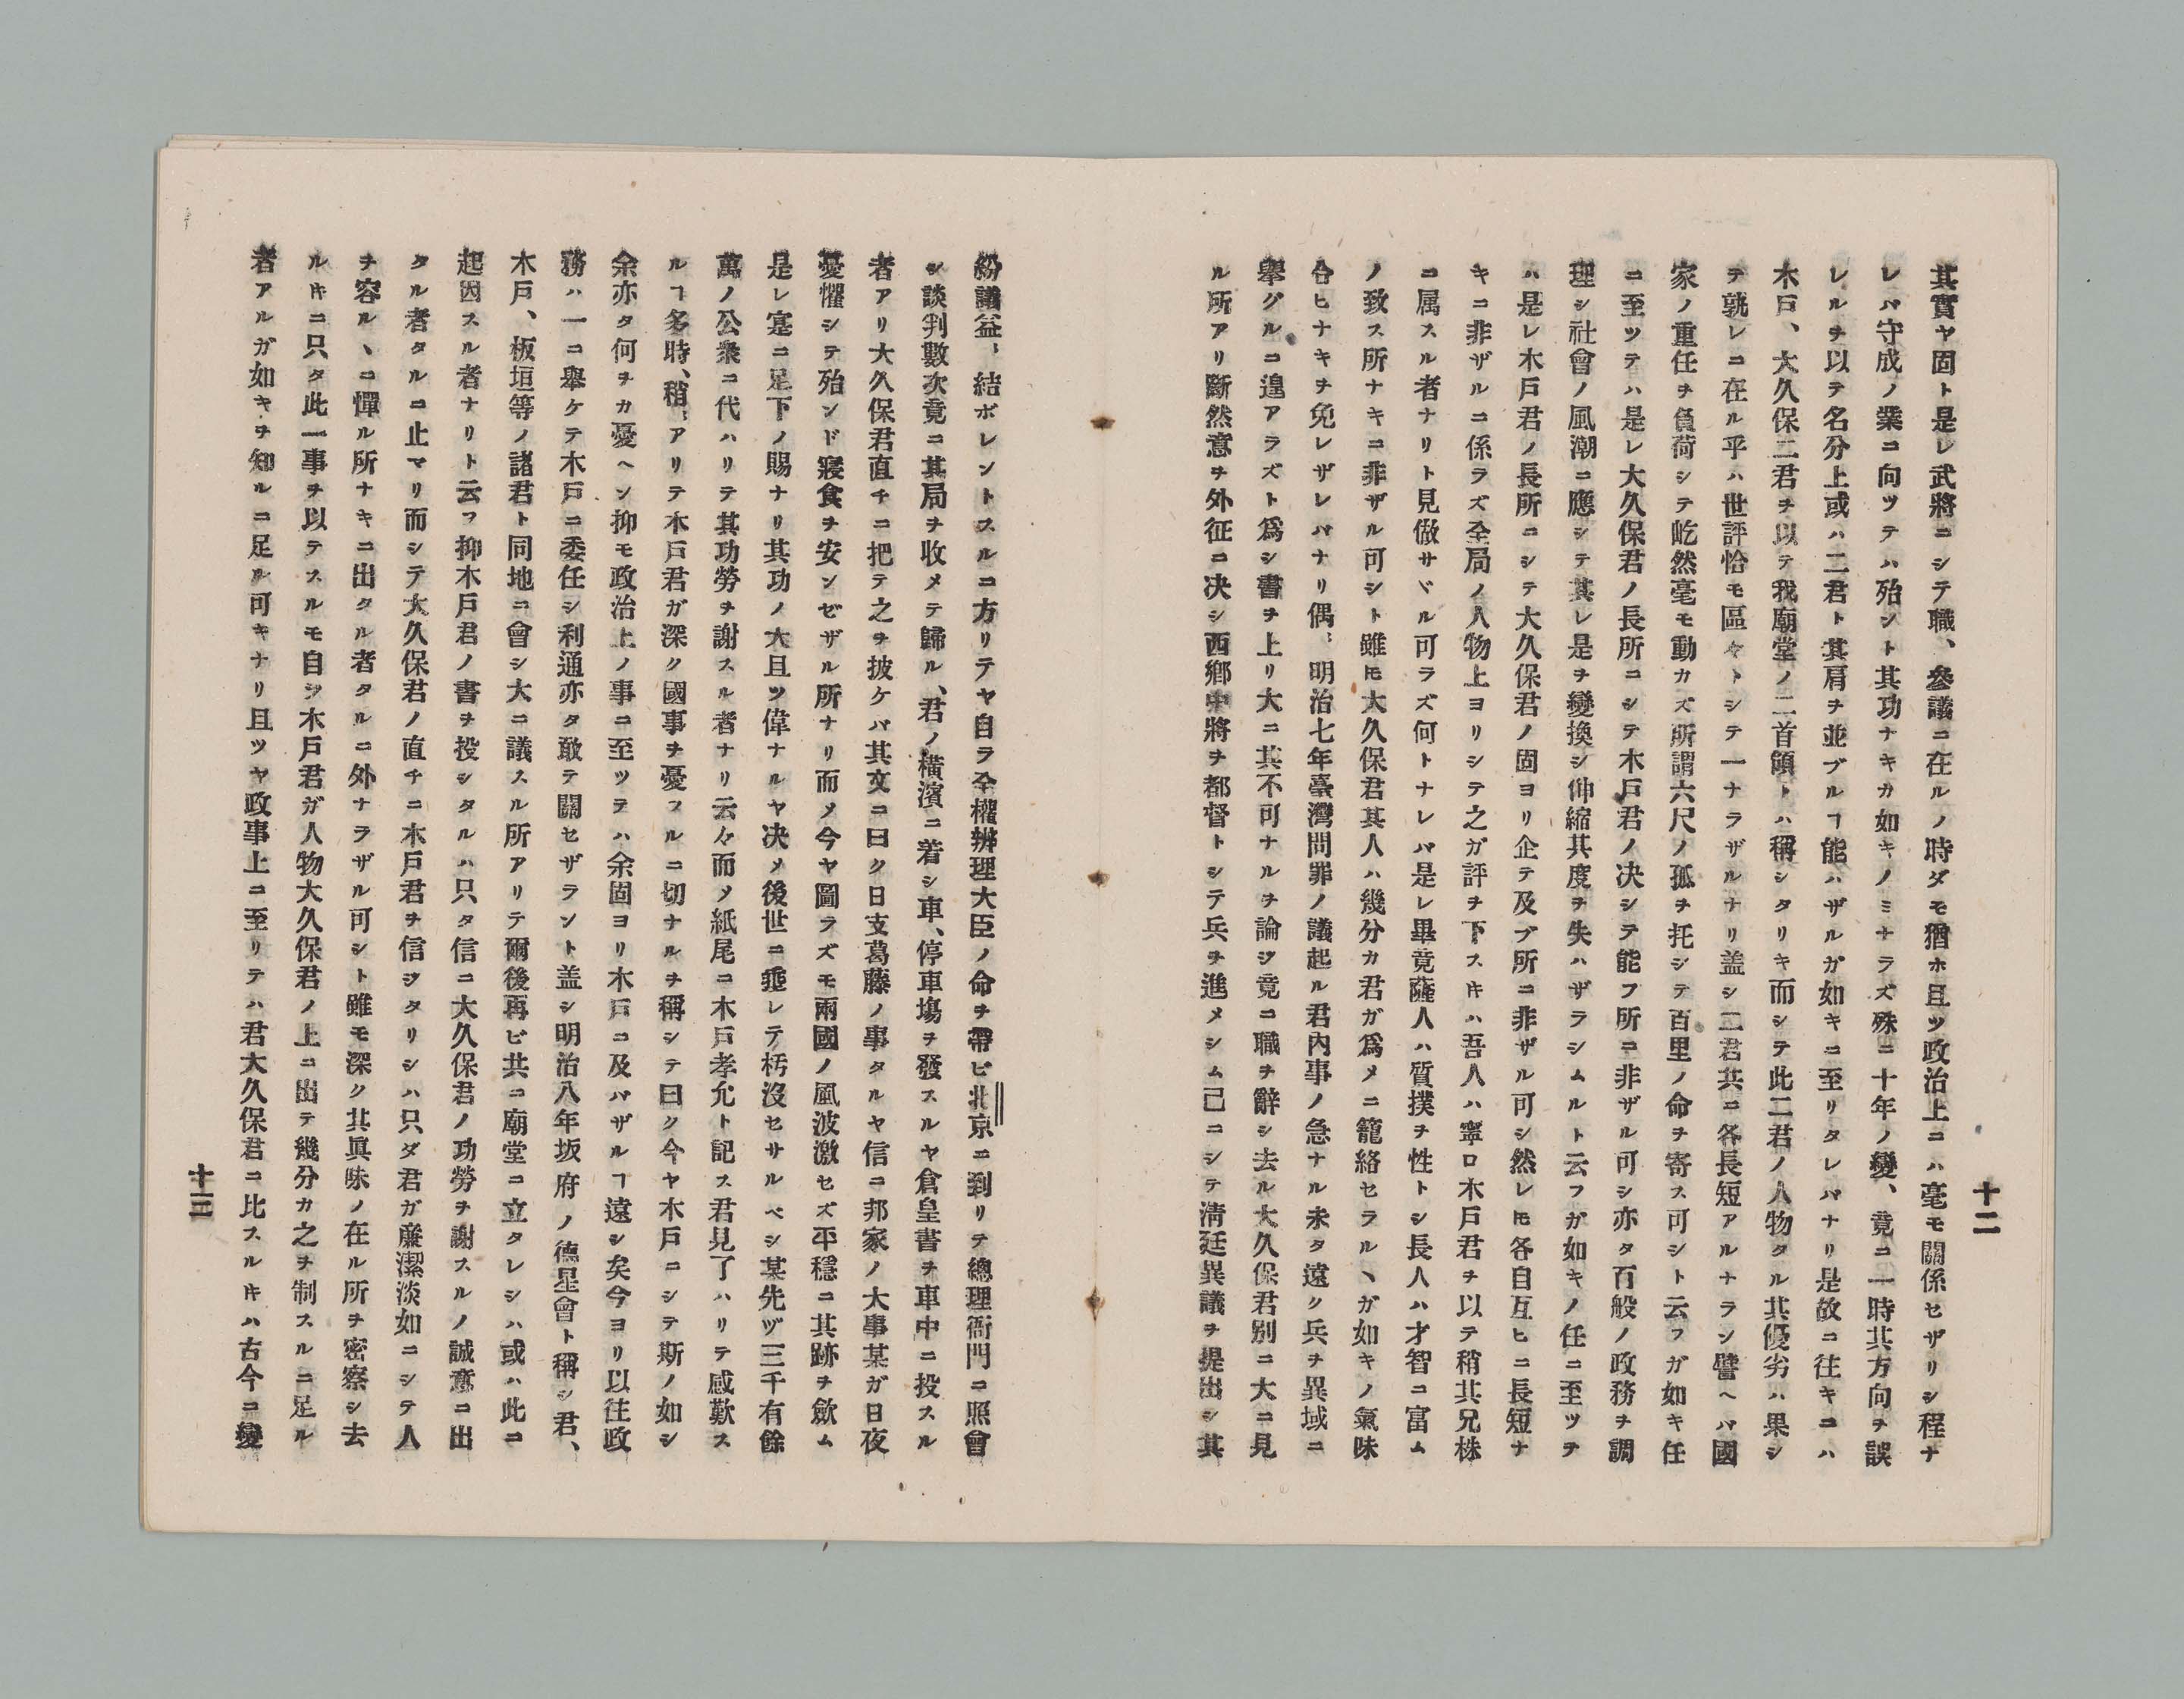 十二
其實ヤ固ト是レ武將ニシテ職、參議ニ在ルノ時ダモ猶ホ且ツ政治上ニハ毫モ關係セザリシ程ナ
レバ守成ノ業ニ向ツテハ殆ント其功ナキカ如キノミナラズ殊ニ十年ノ變、竟ニ一時其方向ヲ誤
レルヲ以テ名分上或ハ二君ト其肩ヲ並ブルヿ能ハザルガ如キニ至リタレバナリ是故ニ往キニハ
木戸、大久保二君ヲ以テ我廟堂ノ二首領トハ稱シタリキ而シテ此二君ノ人物タル其優劣ハ果シ
テ孰レニ在ル乎ハ世評恰モ區々トシテ一ナラザルナリ盖シ二君共ニ各長短アルナラン譬ヘバ國
家ノ重任ヲ負荷シテ屹然毫モ動カズ所謂六尺ノ孤ヲ托シテ百里ノ命ヲ寄ス可シト云フガ如キ任
ニ至ツテハ是レ大久保君ノ長所ニシテ木戸君ノ决シテ能フ所ニ非ザル可シ亦タ百般ノ政務ヲ調
理シ社會ノ風潮ニ應シテ其レ是ヲ變換シ伸縮其度ヲ失ハザラシムルト云フガ如キノ任ニ至ツテ
ハ是レ木戸君ノ長所ニシテ大久保君ノ固ヨリ企テ及ブ所ニ非ザル可シ然レ𪜈各自互ヒニ長短ナ
キニ非ザルニ係ラズ全局ノ人物上ヨリシテ之ガ評ヲ下スキハ吾人ハ寧ロ木戸君ヲ以テ稍其兄株
ニ属スル者ナリト見傚サヾル可ラズ何トナレバ是レ畢竟薩人ハ質撲ヲ性トシ長人ハ才智ニ富ム
ノ致ス所ナキニ非ザル可シト雖𪜈大久保君其人ハ幾分カ君ガ爲メニ籠絡セラルヽガ如キノ氣味
合ヒナキヲ免レザレバナリ偶〻明治七年臺灣問罪ノ議起ル君内事ノ急ナル未タ遠ク兵ヲ異域ニ
舉グルニ遑アラズト爲シ書ヲ上リ大ニ其不可ナルヲ論ジ竟ニ職ヲ辭シ去ル大久保君別ニ大ニ見
ル所アリ斷然意ヲ外征ニ决シ西郷中將ヲ都督トシテ兵ヲ進メシム已ニシテ淸廷異議ヲ提出シ其
紛議益〻結ボレントスルニ方リテヤ自ラ全權辨理大臣ノ命ヲ帶ビ北京ニ到リテ總理衙門ニ照會
シ談判數次竟ニ其局ヲ收メテ歸ル、君ノ橫濱ニ着シ車、停車塲ヲ發スルヤ倉皇書ヲ車中ニ投スル
者アリ大久保君直チニ把テ之ヲ披ケバ其文ニ曰ク日支葛藤ノ事タルヤ信ニ邦家ノ大事某ガ日夜
憂懼シテ殆ンド寢食ヲ安ンゼザル所ナリ而メ今ヤ圖ラズモ兩國ノ風波激セズ平穩ニ其跡ヲ歛ム
是レ寔ニ足下ノ賜ナリ其功ノ大且ツ偉ナルヤ决メ後世ニ埀レテ朽沒セサルベシ某先ヅ三千有餘
萬ノ公衆ニ代ハリテ其功勞ヲ謝スル者ナリ云々而メ紙尾ニ木戸孝允ト記ス君見了ハリテ感歎ス
ルヿ多時、稍〻アリテ木戸君ガ深ク國事ヲ憂フルニ切ナルヲ稱シテ曰ク今ヤ木戸ニシテ斯ノ如シ
余亦タ何ヲカ憂ヘン抑モ政治上ノ事ニ至ツテハ余固ヨリ木戸ニ及バザルヿ遠シ矣今ヨリ以往政
務ハ一ニ舉ケテ木戸ニ委任シ利通亦タ敢テ關セザラント盖シ明治八年坂府ノ德星會ト稱シ君、
木戸、板垣等ノ諸君ト同地ニ會シ大ニ議スル所アリテ爾後再ビ共ニ廟堂ニ立タレシハ或ハ此ニ
起因スル者ナリト云フ抑木戸君ノ書ヲ投シタルハ只タ信ニ大久保君ノ功勞ヲ謝スルノ誠意ニ出
タル者タルニ止マリ而シテ大久保君ノ直チニ木戸君ヲ信ジタリシハ只ダ君ガ廉潔淡如ニシテ人
ヲ容ルヽニ憚ル所ナキニ出クル者タルニ外ナラザル可シト雖モ深ク其眞味ノ在ル所ヲ密察シ去
ルキニ只タ此一事ヲ以テスルモ自ラ木戸君ガ人物大久保君ノ上ニ出テ幾分カ之ヲ制スルニ足ル
者アルガ如キヲ知ルニ足ル可キナリ且ツヤ政事上ニ至リテハ君大久保君ニ比スルキハ古今ニ變
十三